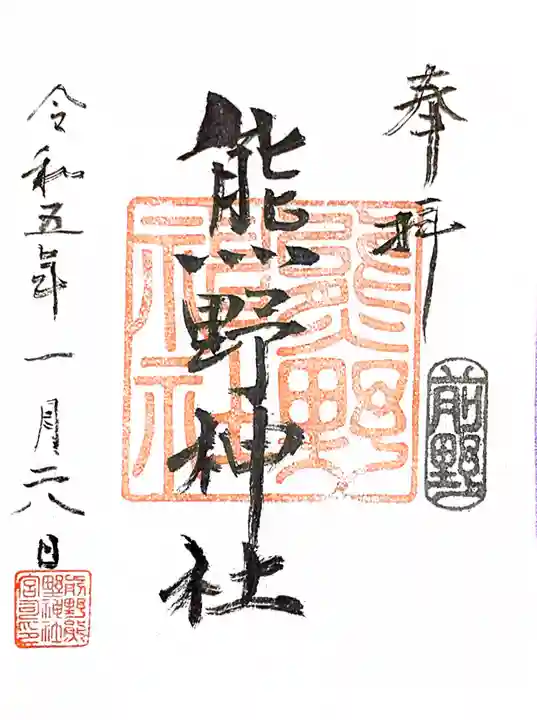 奉拝
前野
熊野神社
熊野神社
令和五年一月二八日
前野熊
野神社
宮司印